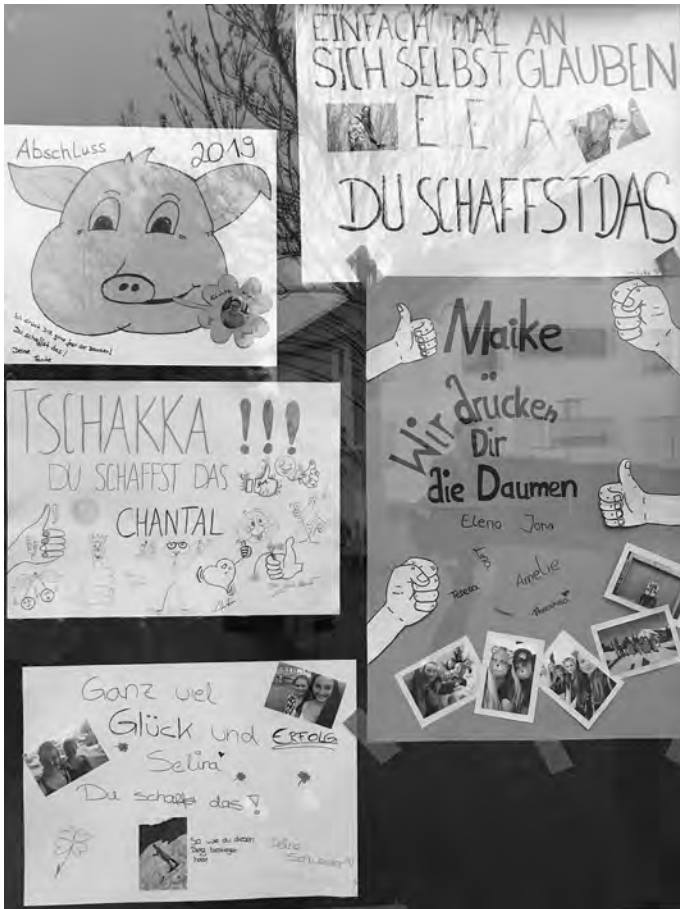 EINFACH MAL AN
SICH SELBST GLAUBEN
E E A
DU SCHAFFST DAS
Abschluss 2019
Ich drück Dir ganz fest die Daumen!
Du schaffst das!
Deine
TSCHAKKA !!!
DU SCHAFFST DAS
CHANTAL
Maike
Wir drücken
Dir
die Daumen
Elena Jana
Teresa Amelie
Ganz viel
Glück und ERFOLG
Selina
Du schaffst das!
So wie du diesen
Berg bestiegen
hast
Deine
Schwester